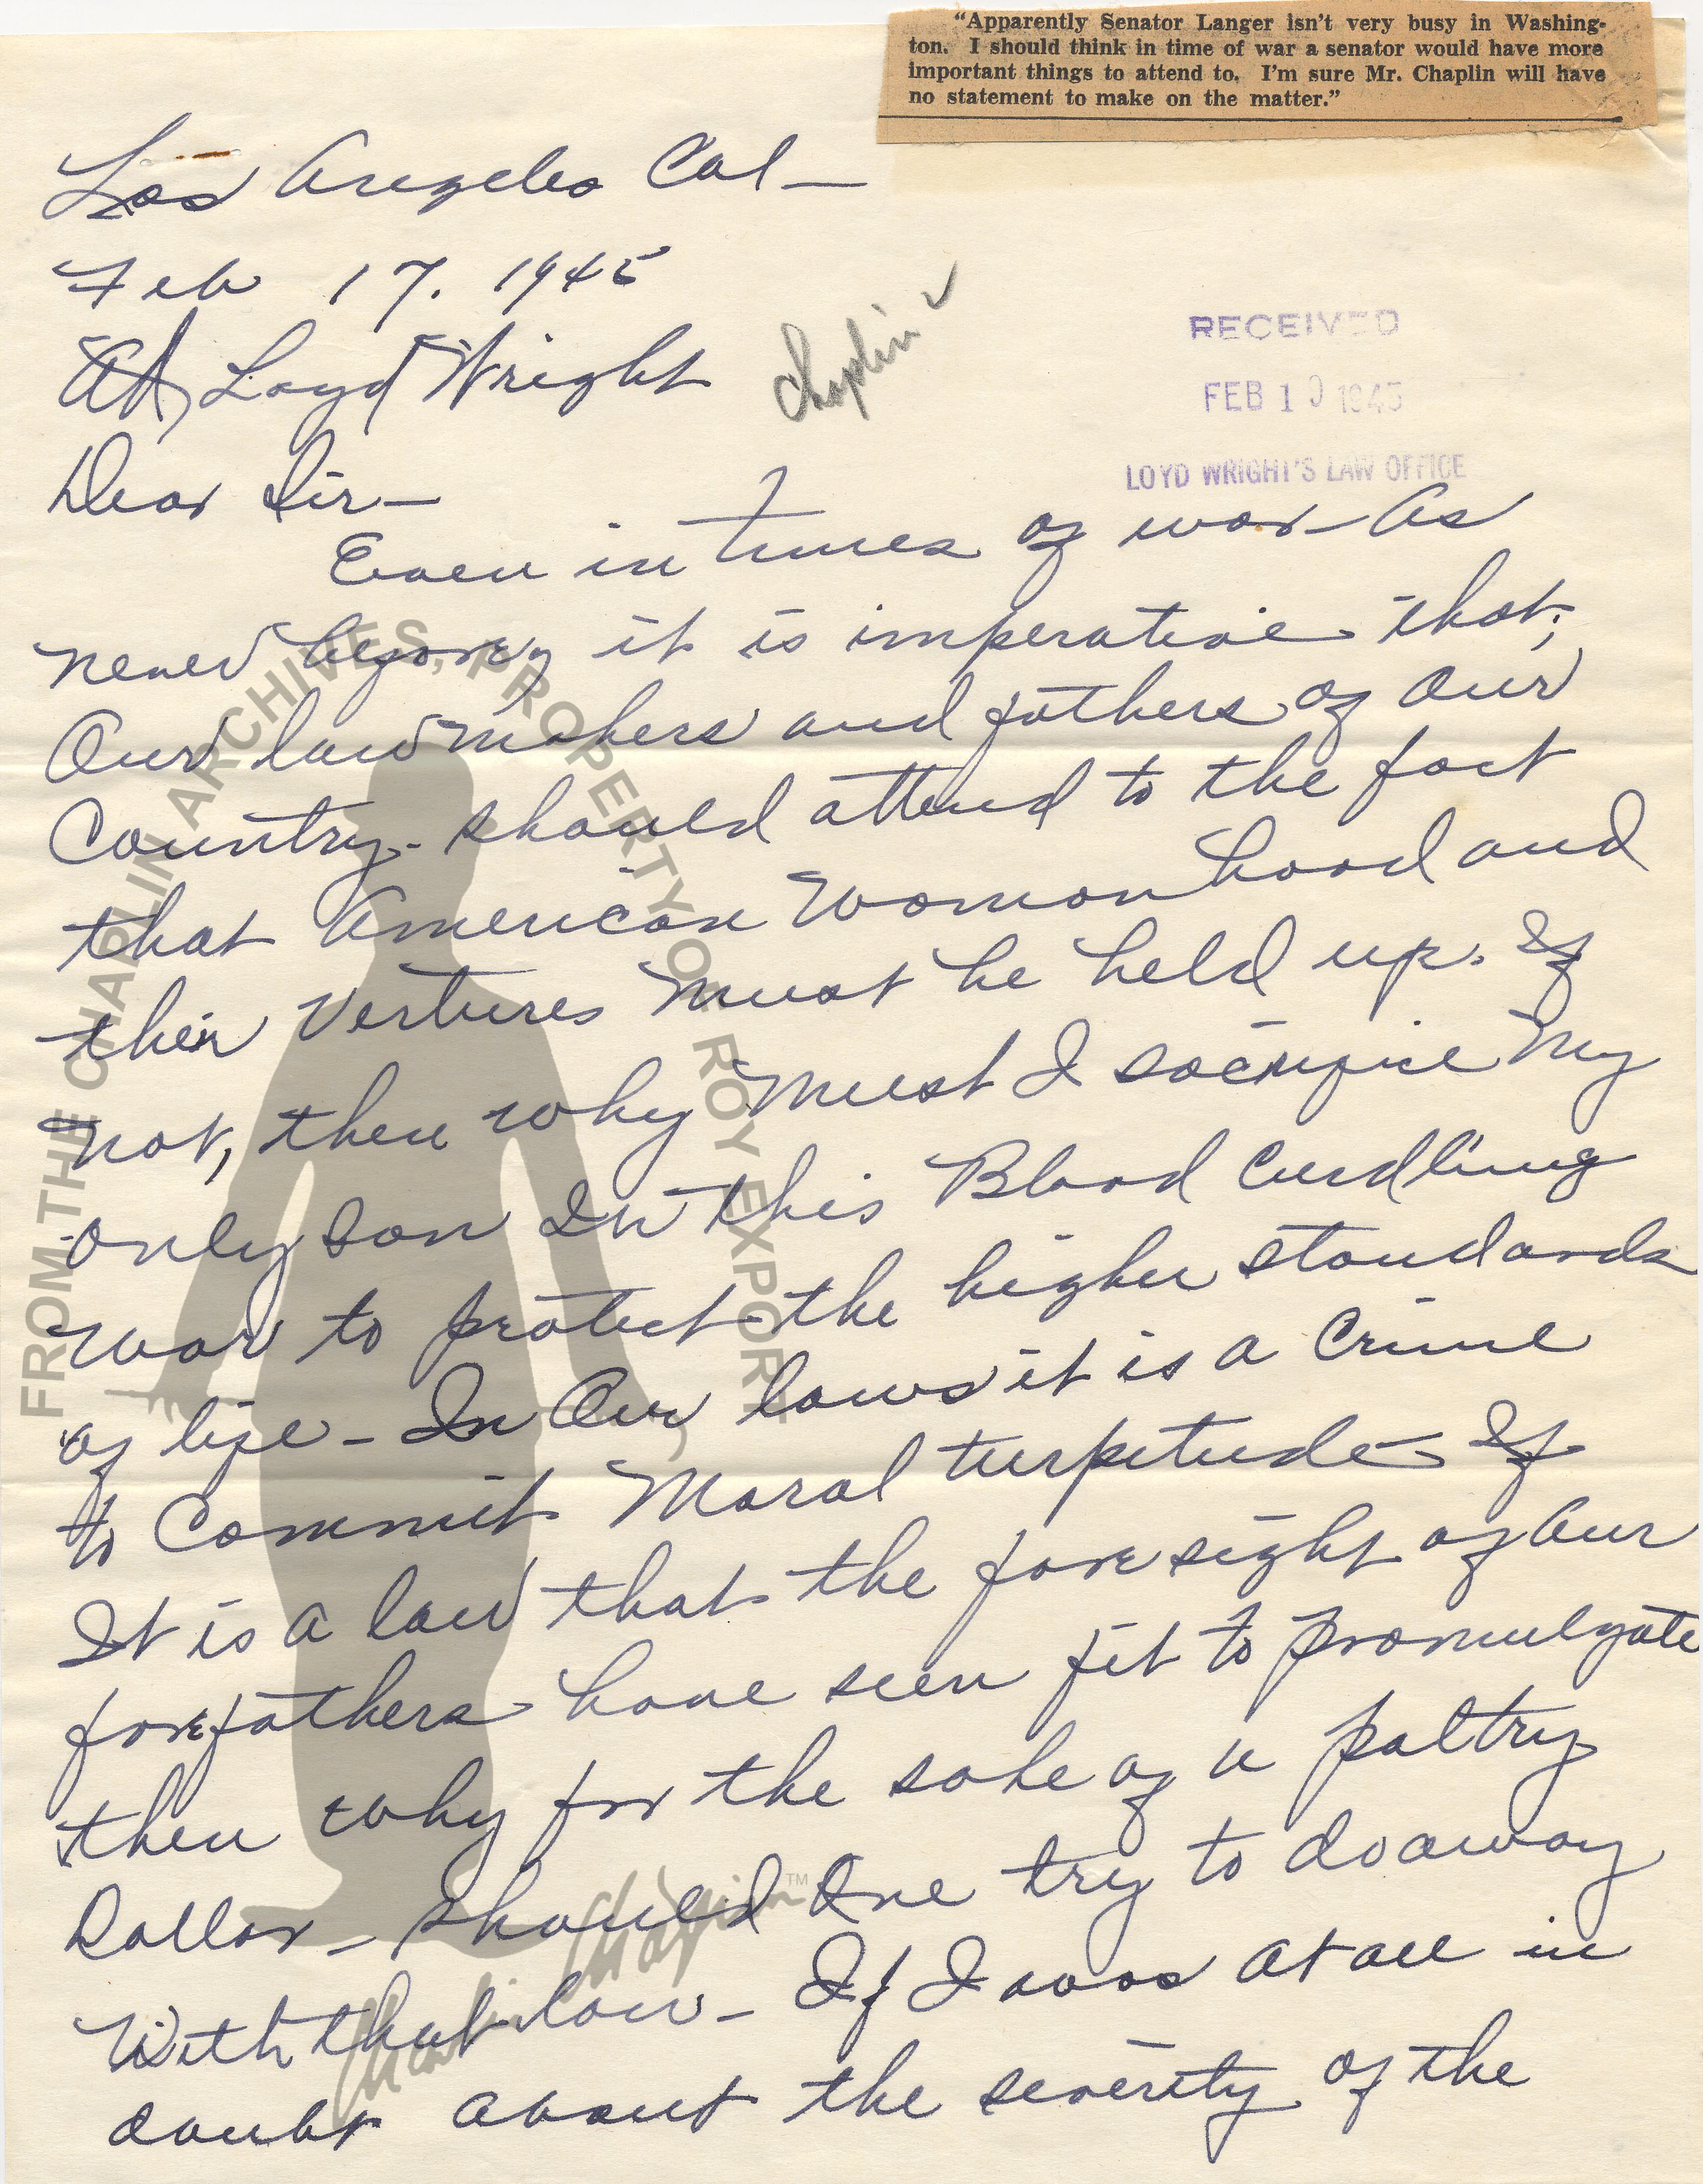 “Apparently Senator Langer isn't very busy in Washing-
ton. I should think in time of war a senator would have more
important things to attend to. I'm sure Mr. Chaplin will have
no statement to make on the matter.”
Los Angeles Cal—
Feb 17. 1945
Loyd Wright
Chaplin ✓
RECEIVED
FEB 19 1945
LOYD WRIGHT'S LAW OFFICE
Dear Sir—
Even in times of war—As
never before, it is imperative that,
Our lawmakers and fathers of Our
Country. should attend to the fact
that American Womanhood and
their Vertures Must be held up. If
not, then why Must I sacrifice My
only son In this Blood Curdling
war to protect the higher standards
of life — In Our laws it is a Crime
to Commit Moral turpitude — If
It is a law that the foresight of Our
forefathers have seen fit to promulgate
then why for the sake of a paltry
Dollar — should One try to do away
With that law — If I was at all in
doubt about the severity of the
FROM THE CHAPLIN ARCHIVES, PROPERTY OF ROY EXPORT
Charlie Chaplin™